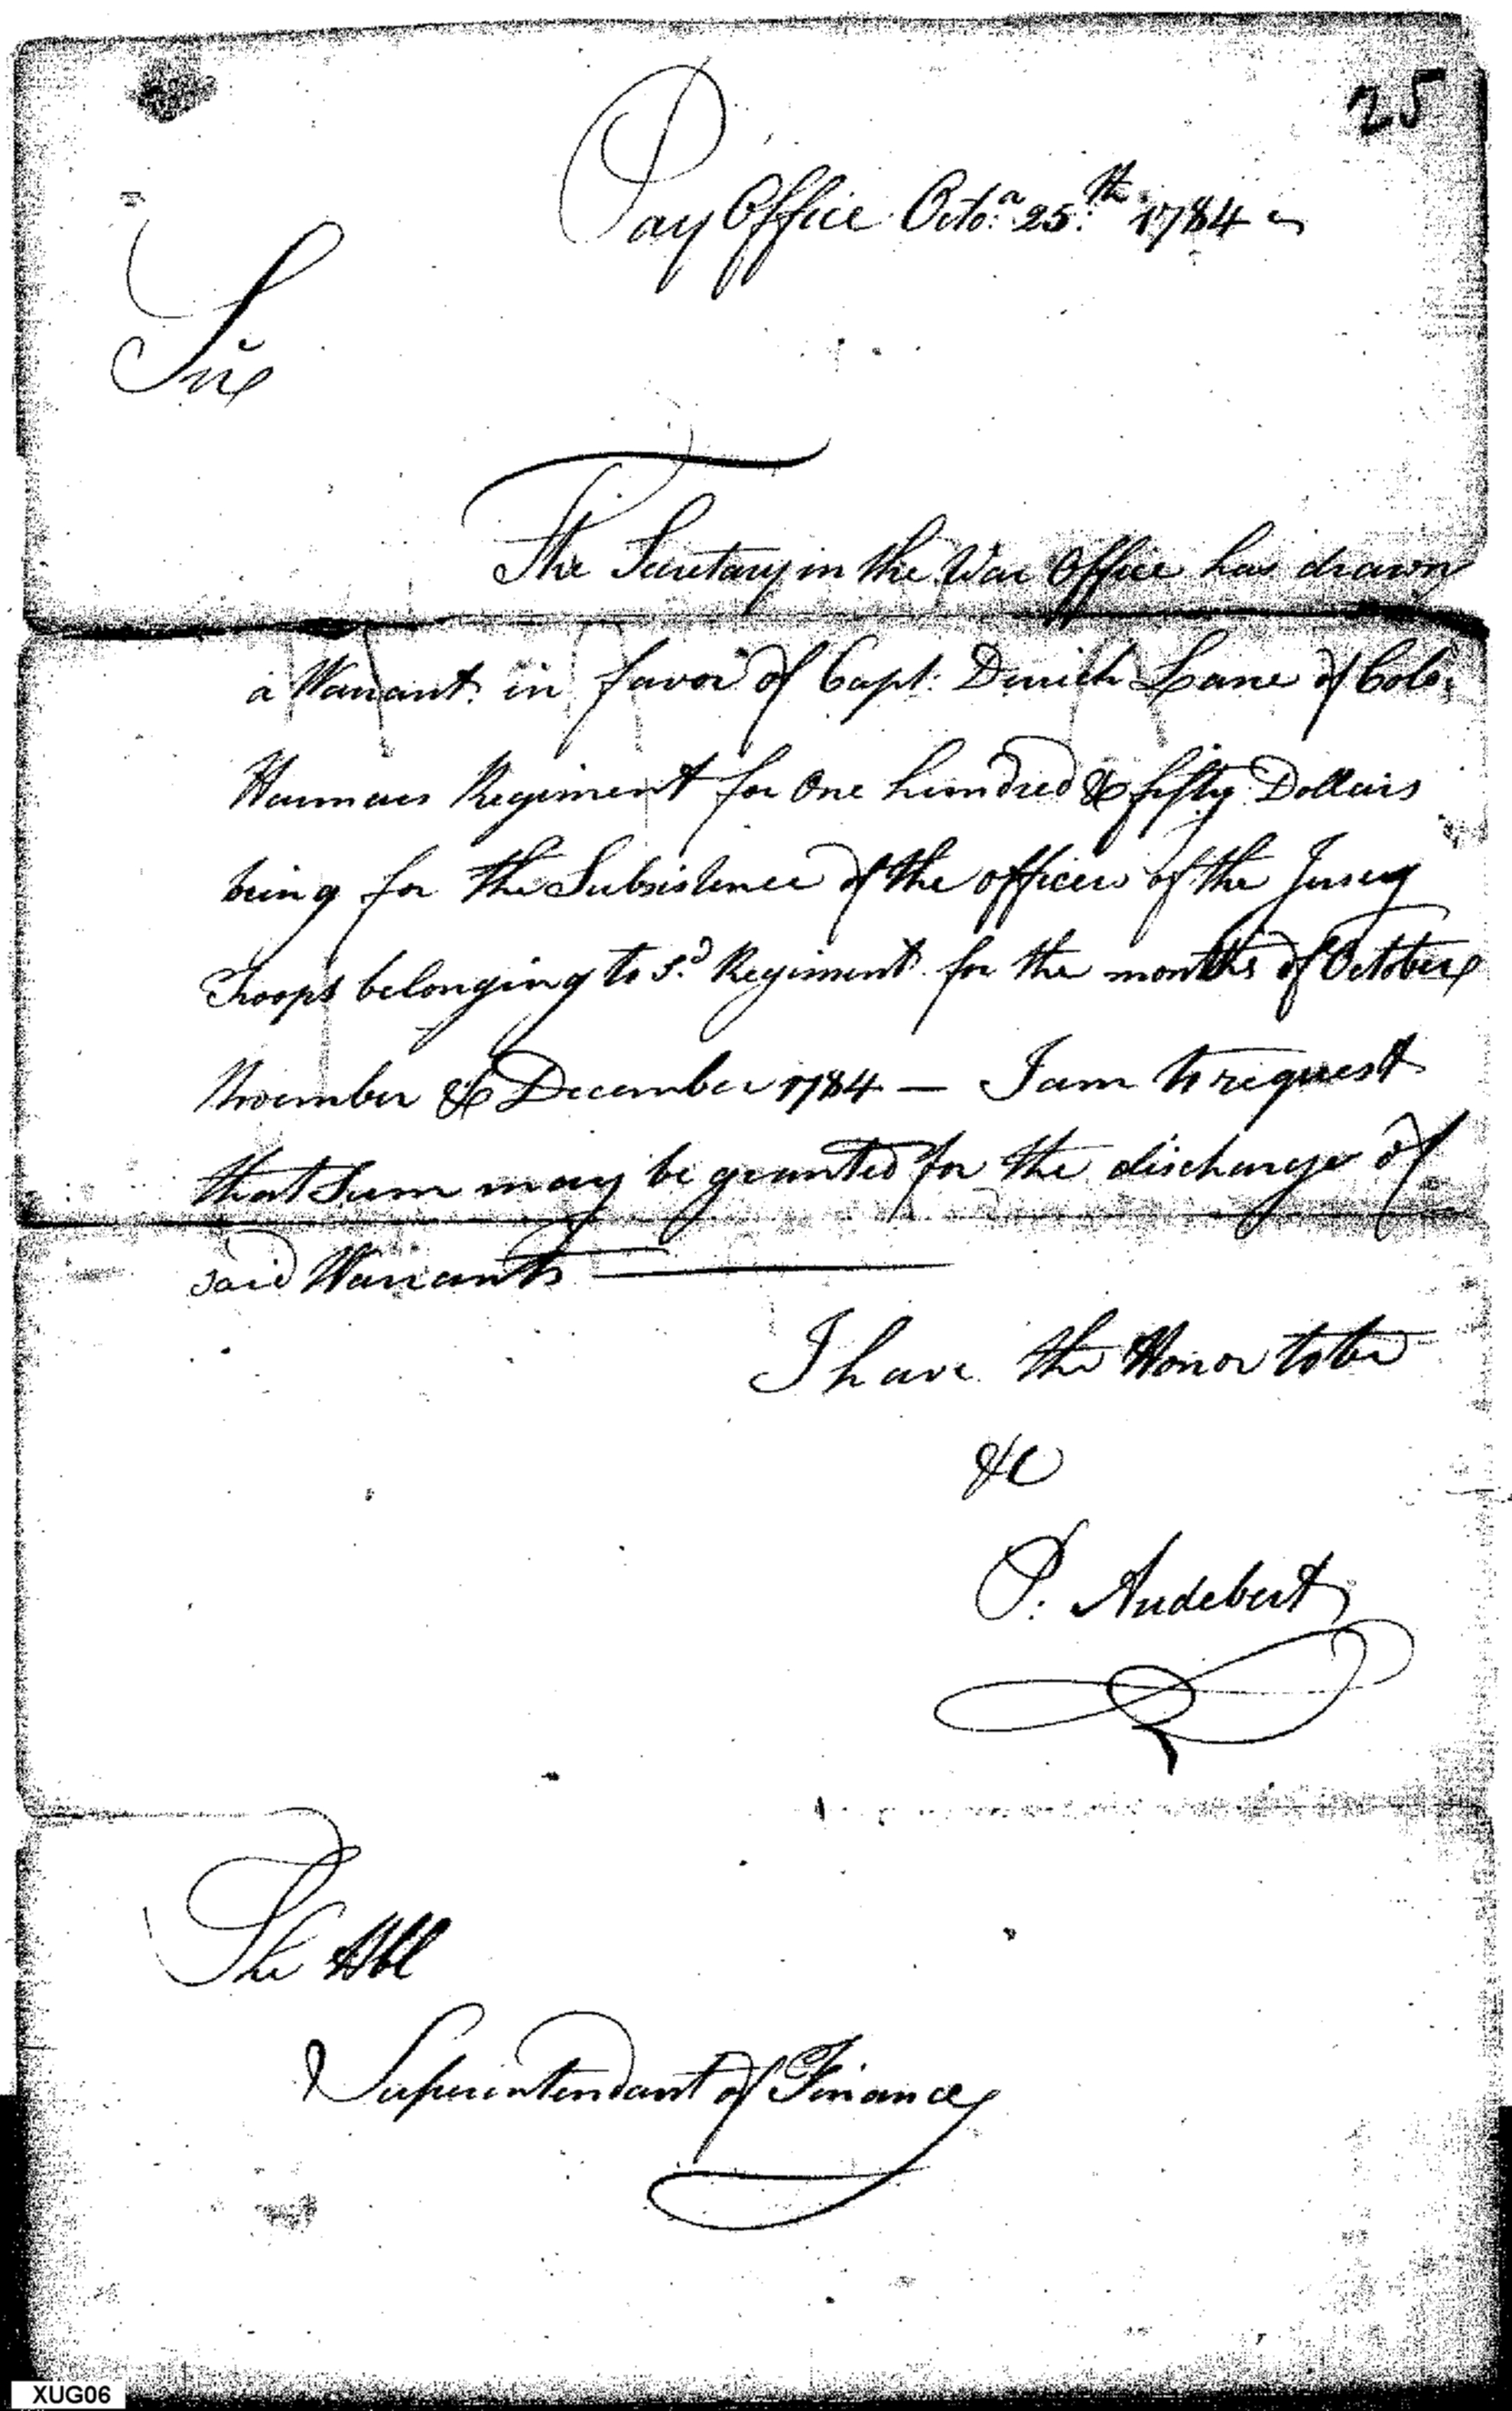 25
Pay Office Octo.r 25.th 1784
Sir
The Secretary in the War Office has drawn
a Warrant in favor of Capt: Derrick Lane of Colo.
Harmars Regiment for One hundred & fifty Dollars
being for the Subsistence of the officers of the Jersey
Troops belonging to s.d Regiment for the months of October
November & December 1784 — I am to request
that Sum may be granted for the discharge of
said Warrant
I have the Honor to be
&c
P. Audebert
The Hbl
Superintendant of Finance
XUG06